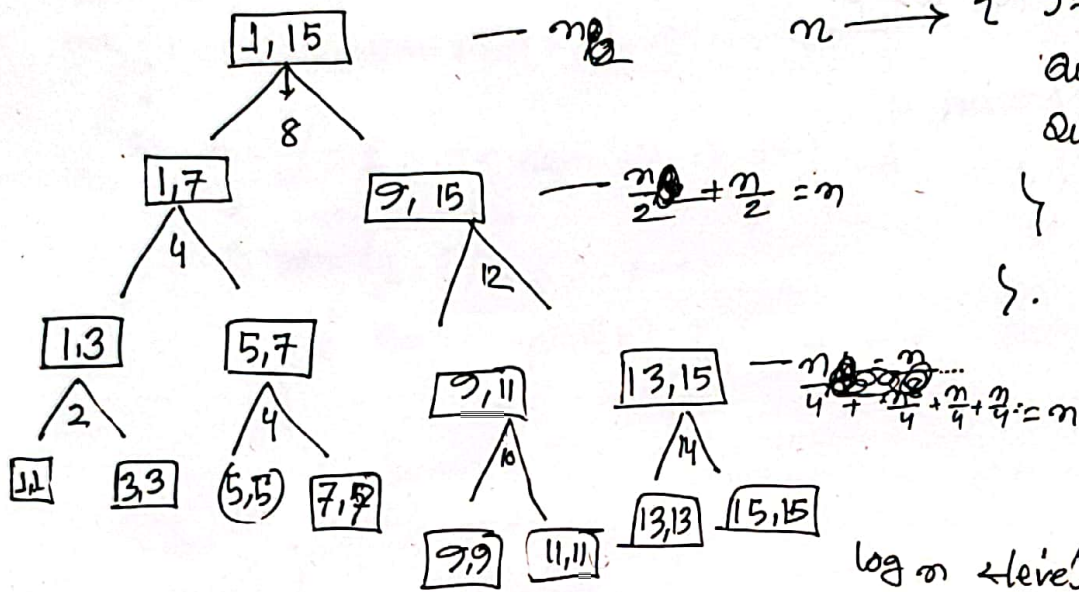 1,15 — n n → {
8
1,7 9, 15 — n/2 + n/2 = n
4 12 }
}.
1,3 5,7 9,11 13,15 — n/4 + n/4 + n/4 + n/4 = n
2 4 10 14
1,1 3,3 (5,5) 7,7 9,9 11,11 13,13 15,15
log n